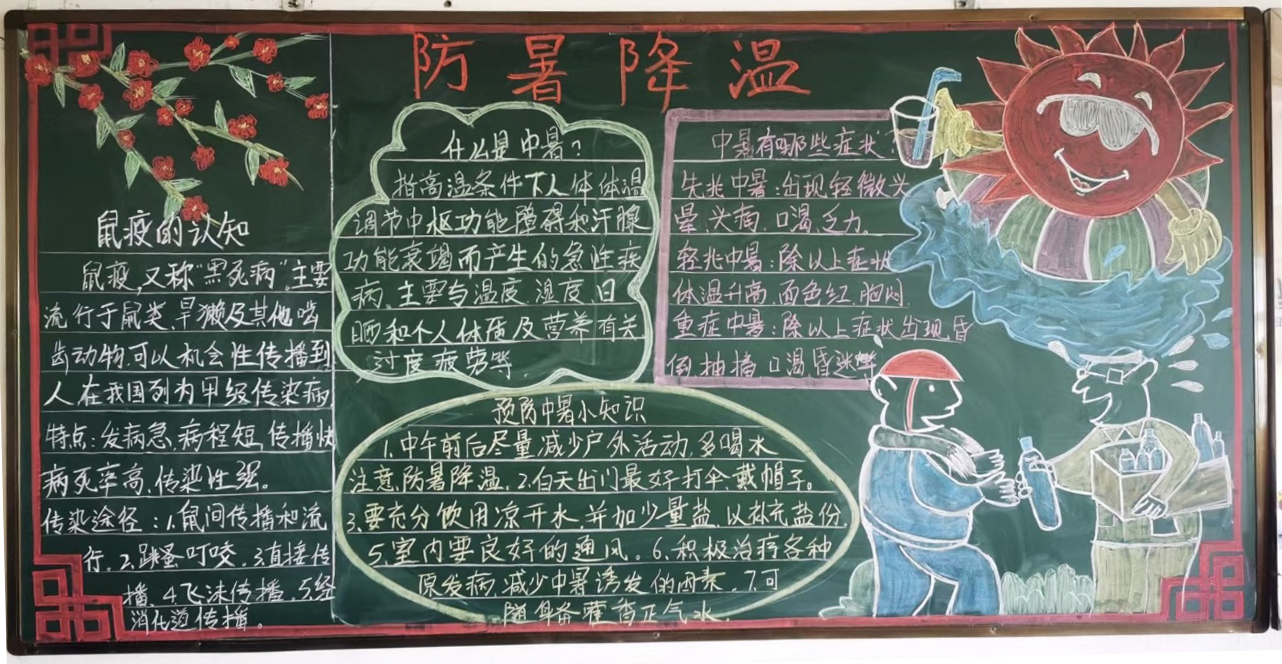 防暑降温
鼠疫的认知
鼠疫,又称“黑死病”.主要
流行于鼠类、旱獭及其他啮
齿动物,可以机会性传播到
人在我国列为甲级传染病
特点:发病急、病程短、传播快
病死率高、传染性强。
传染途径:1.鼠间传播和流
行.2.跳蚤叮咬.3.直接传
播.4.飞沫传播.5.经
消化道传播。
什么是中暑?
指高温条件下人体体温
调节中枢功能障碍和汗腺
功能衰竭而产生的急性疾
病.主要与温度.湿度.日
晒和个人体质及营养有关
过度疲劳等.
中暑有哪些症状?
先兆中暑:出现轻微头
晕.头痛.口渴.乏力.
轻兆中暑:除以上症状
体温升高.面色红.胸闷.
重症中暑:除以上症状出现昏
倒抽搐.口渴昏迷等
预防中暑小知识
1.中午前后尽量减少户外活动,多喝水
注意防暑降温.2.白天出门最好打伞、戴帽子。
3.要充分饮用凉开水,并加少量盐,以补充盐份
5.室内要良好的通风.6.积极治疗各种
原发病,减少中暑诱发的因素.7.可
随身备藿香正气水.